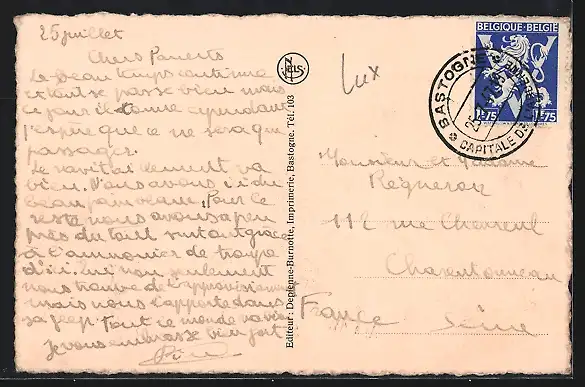 25 juillet
Chers Parents
Le beau temps continue
et tout se passe bien mais
ce jour il tonne cependant
j'espere que ce ne sera que
passager.
Le ravitaillement va
bien. Nous avons ici du
beau pain blanc. Pour le
reste nous avons a peu
près du tout surtout grâce
à l'aumonier de troupe
d'ici. qui non seulement
nous trouve de l'approvisionnement
mais nous l'apporte dans
sa jeep. Tout le monde va bien
Je vous embrasse bien fort
Editeur : Depienne-Burnotte, Imprimerie, Bastogne. Tél. 103
Lux
BELGIQUE-BELGIE
1F75 1F75
BASTOGNE
CAPITALE DE
Monsieur et Madame
Regneron
112 rue Chevreul
Charentonneau
Seine
France